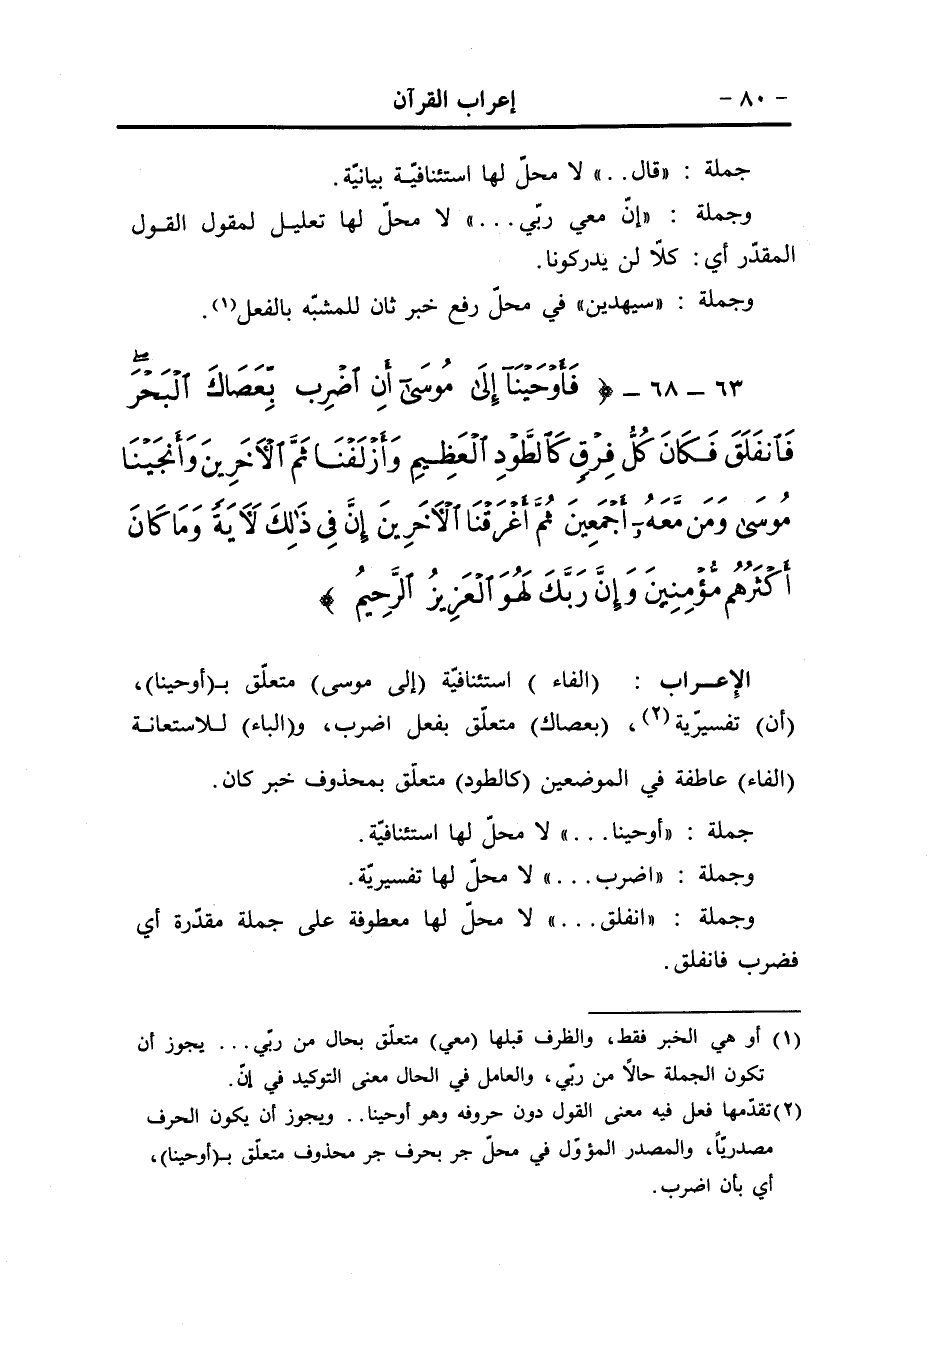 - ٨٠ - إعراب القرآن
جملة : «قال..» لا محلّ لها استئنافيّـة بيانيّة.
وجملة : «إنّ معي ربّي...» لا محلّ لها تعليـل لمقول القـول
المقدّر أي: كلّا لن يدركونا.
وجملة : «سيهدين» في محلّ رفع خبر ثان للمشبّه بالفعل(١).
٦٣ ـ ٦٨ ـ ﴿ فَأَوْحَيْنَآ إِلَىٰ مُوسَىٰٓ أَنِ ٱضْرِب بِّعَصَاكَ ٱلْبَحْرَۖ
فَٱنفَلَقَ فَكَانَ كُلُّ فِرْقٍ كَٱلطَّوْدِ ٱلْعَظِيمِ وَأَزْلَفْنَا ثَمَّ ٱلْآخَرِينَ وَأَنجَيْنَا
مُوسَىٰ وَمَن مَّعَهُۥٓ أَجْمَعِينَ ثُمَّ أَغْرَقْنَا ٱلْآخَرِينَ إِنَّ فِى ذَٰلِكَ لَآيَةً وَمَا كَانَ
أَكْثَرُهُم مُّؤْمِنِينَ وَإِنَّ رَبَّكَ لَهُوَ ٱلْعَزِيزُ ٱلرَّحِيمُ ﴾
الإعـــراب : (الفاء ) استئنافيّة (إلى موسى) متعلّق بـ(أوحينا)،
(أن) تفسيرّية(٢)، (بعصاك) متعلّق بفعل اضرب، و(الباء) لـلاستعانـة
(الفاء) عاطفة في الموضعين (كالطود) متعلّق بمحذوف خبر كان.
جملة : «أوحينا...» لا محلّ لها استئنافيّة.
وجملة : «اضرب...» لا محلّ لها تفسيريّة.
وجملة : «انفلق...» لا محلّ لها معطوفة على جملة مقدّرة أي
فضرب فانفلق.
(١) أو هي الخبر فقط، والظرف قبلها (معي) متعلّق بحال من ربّي... يجوز أن
تكون الجملة حالًا من ربّي، والعامل في الحال معنى التوكيد في إنّ.
(٢)تقدّمها فعل فيه معنى القول دون حروفه وهو أوحينا.. ويجوز أن يكون الحرف
مصدريّاً، والمصدر المؤوّل في محلّ جر بحرف جر محذوف متعلّق بـ(أوحينا)،
أي بأن اضرب.